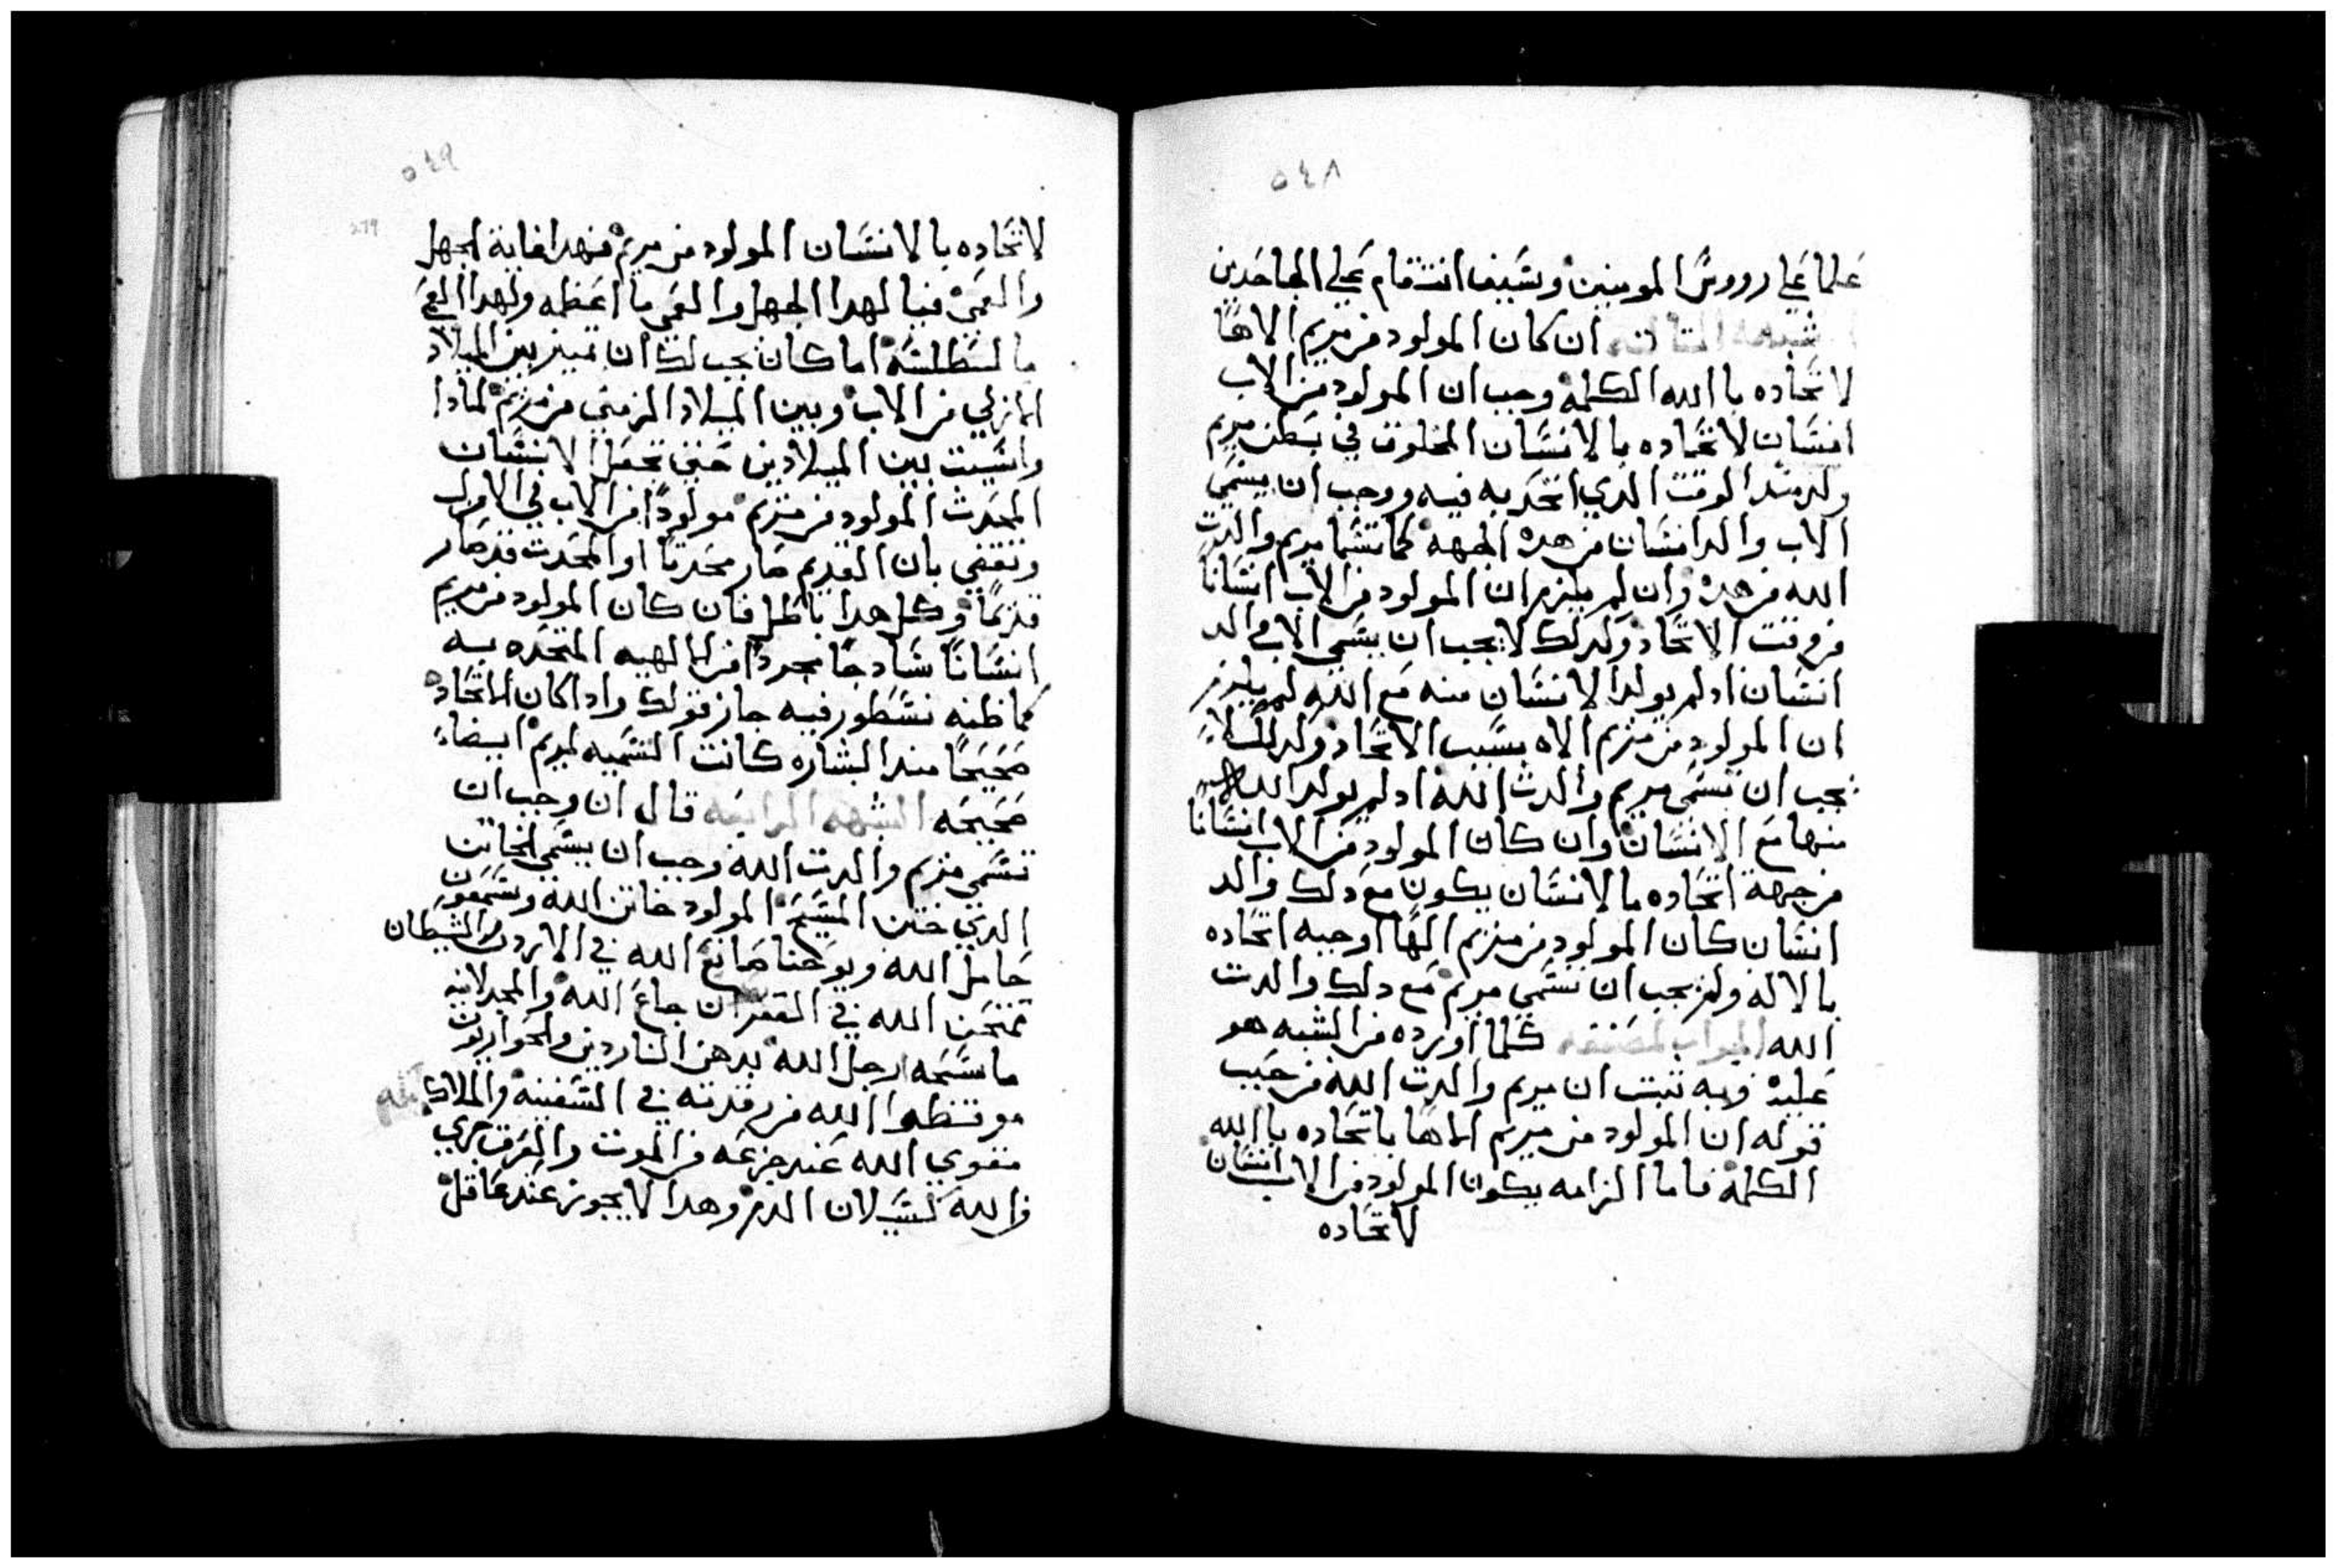 ٥٤٨
علما علي رووس المومنين وسيف انتقام علي الجاحدين
الشبهه الثالثه ان كان المولود من مريم الاها
لاتحاده باالله الكلمة وجب ان المولود من الاب
انسان لاتحاده بالانسان المخلوق في بطن مريم
ولد مند الوقت الدي اتحد به فيه ووجب ان يسمي
الاب والد انسان من هده الجهه كما تسما مريم والدت
الله من هده وان لم يلزم ان المولود من الاب انسانا
من وقت الاتحاد ولدلك لا يجب ان يسمي الاب والد
انسان اد لم يولد الانسان منه مع الله لم يلزم
ان المولود من مريم الاه بسبب الاتحاد ولدلك لا
يجب ان تسمي مريم والدت الله اد لم يولد الله
منها مع الانسان وان كان المولود من الاب انسانا
من جهة اتحاده بالانسان يكون مع دلك والد
انسان كان المولود من مريم الها اوجبه اتحاده
بالاله ولم يجب ان تسمي مريم مع دلك والدت
الله الجواب لمصنفه كلما اورده من الشبه هو
عليه وبه تبت ان مريم والدت الله من حيث
قوله ان المولود من مريم الاها باتحاده باالله
الكلمة فاما الزامه يكون المولود من الاب انسان
لاتحاده
٥٤٩
279
لاتحاده بالانسان المولود من مريم فهدا غاية الجهل
والعمي فيا لهدا الجهل والعمي ما اعظمه ولهدا العي
ما لسطلسه اما كان يجب لك ان تميز بين الميلاد
الازلي من الاب وبين الميلاد الزمني من مريم لمادا
واسيت بين الميلادين حتي تجعل الانسان
المحدث المولود من مريم مولودا من الاب في الازل
وتقضي بان القديم صار محدثا او المحدث قد صار
قديما وكل هدا باطل فان كان المولود من مريم
انسانا سادجا مجردا من الالهيه المتحده به
كما ظنه نسطور فيه جاز قولك وادا كان الاتحاد
صحيحا مند البشاره كانت التسميه لمريم ايضاء
صحيحه الشبهه الرابعه قال ان وجب ان
تسمي مريم والدت الله وجب ان يسمي الخاتن
الدي ختن المسيح المولود خاتن الله وسمعون
حامل الله ويوحنا صابغ الله في الاردن والشيطان
ممتحن الله في القفر ان جاع الله والمجدلانيه
ماسحه ارجل الله بدهن الناردين والحواريون
موقظوا الله من رقدته في السفينه والملاك
مقوي الله عند جزعه من الموت والعرق جري
من الله كسيلان الدم وهدا لا يجوز عند عاقل